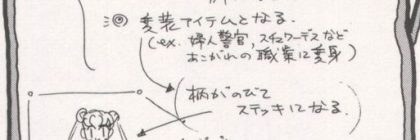 変装アイテムとなる.
(ex. 婦人警官, スチュワーデスなど
あこがれの職業に変身)
(柄がのびて
ステッキになる.